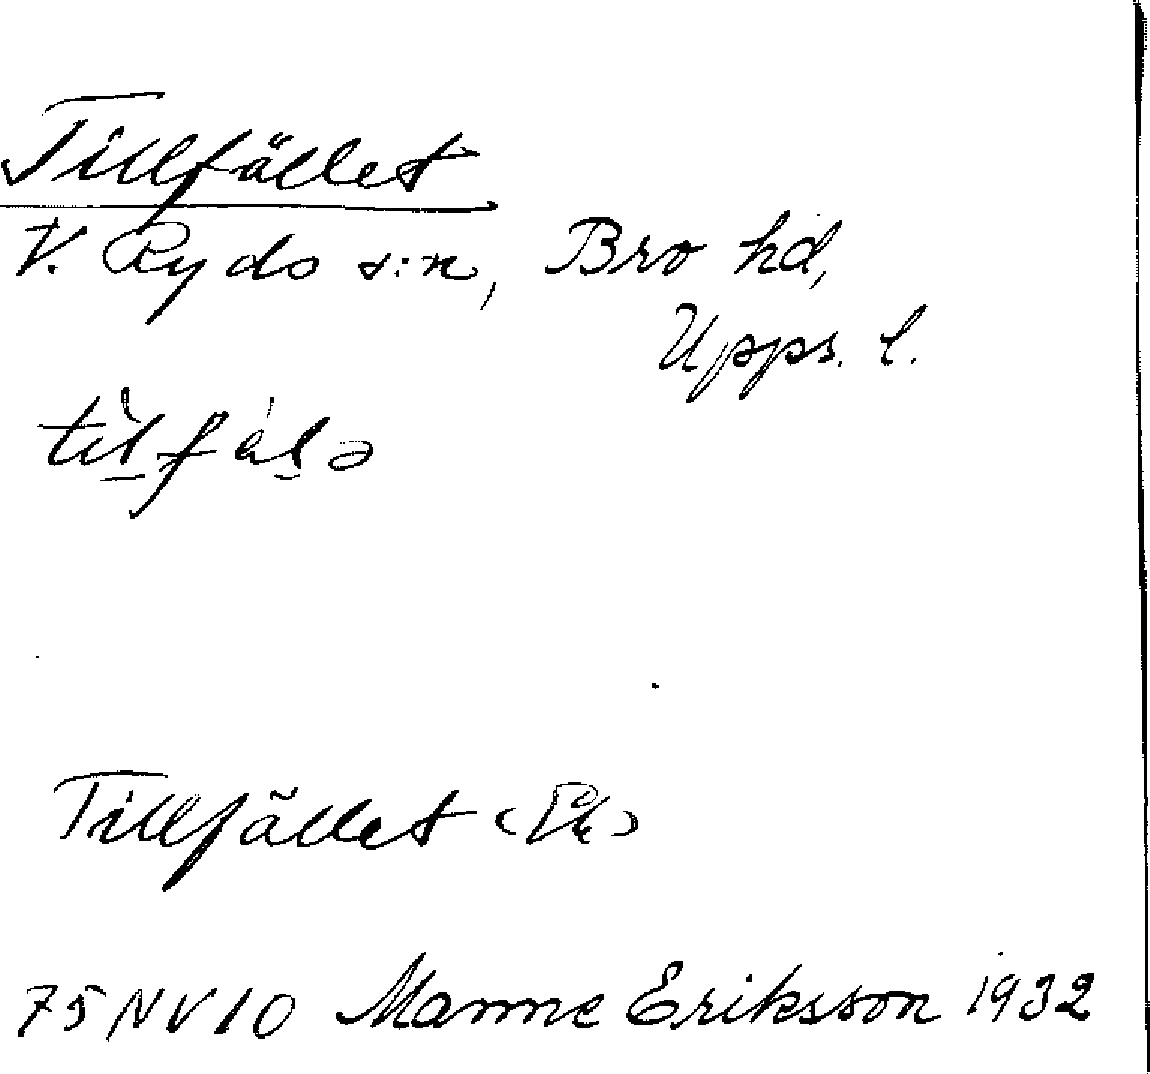 Tillfället
V. Ryds s:n, Bro hd,
Upps. l.
tìl̠fál̠ə
Tillfället (Ek)
75 NV 10 Manne Eriksson 1932